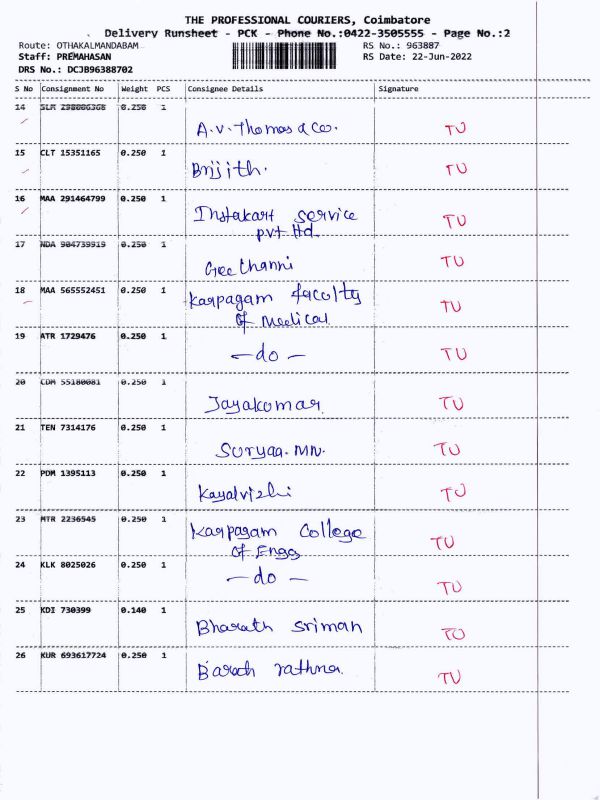 THE PROFESSIONAL COURIERS, Coimbatore
Delivery Runsheet - PCK - Phone No.:0422-3505555 - Page No.:2
Route: OTHAKALMANDABAM
RS No.: 963887
Staff: PREMAHASAN
RS Date: 22-Jun-2022
DRS No.: DCJB96388702
S No Consignment No Weight PCS Consignee Details Signature
14 SLM 298086368 0.250 1
A.V. Thomas & Co. TU
15 CLT 15351165 0.250 1
Brijith. TU
16 MAA 291464799 0.250 1
Instakart service TU
pvt ltd.
17 NDA 904739919 0.250 1
Geethanni TU
18 MAA 565552451 0.250 1
Karpagam faculty TU
of Medical.
19 ATR 1729476 0.250 1
- do - TU
20 CDM 55180081 0.250 1
Jayakumar TU
21 TEN 7314176 0.250 1
Suryaa. MN. TU
22 PDM 1395113 0.250 1
Kayalvizhi TU
23 MTR 2236545 0.250 1
Karpagam College TU
of Engg
24 KLK 8025026 0.250 1
- do - TU
25 KDI 730399 0.140 1
Bharath sriman TU
26 KUR 693617724 0.250 1
Barath rathna. TU